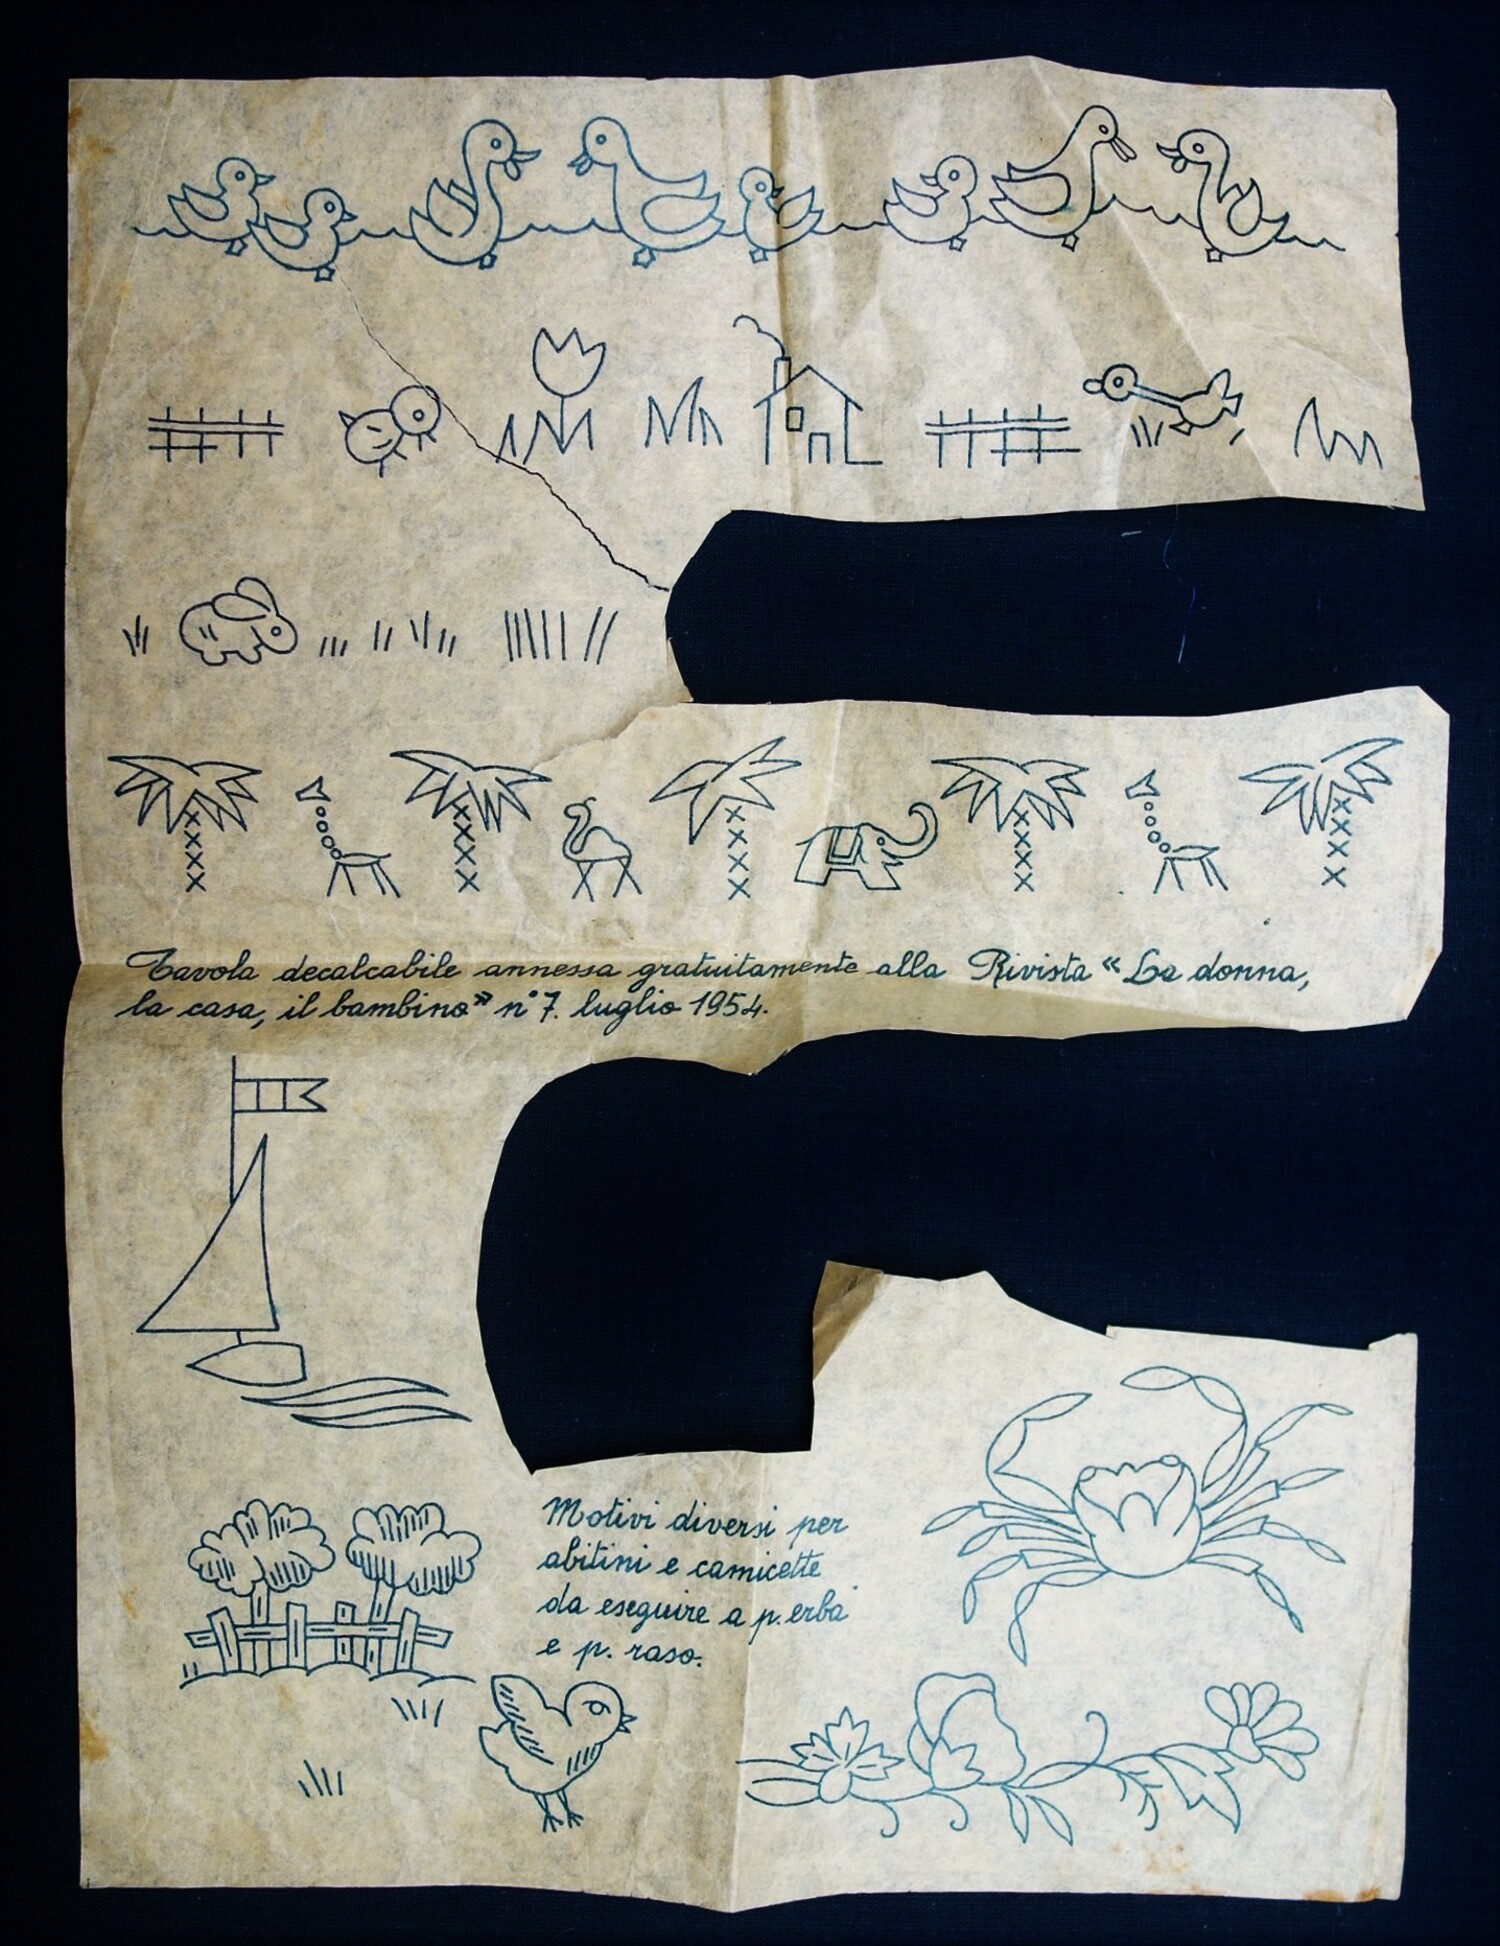 Tavola decalcabile annessa gratuitamente alla Rivista « La donna,
la casa, il bambino » n° 7. luglio 1954.
Motivi diversi per
abitini e camicette
da eseguire a p. erba
e p. raso.